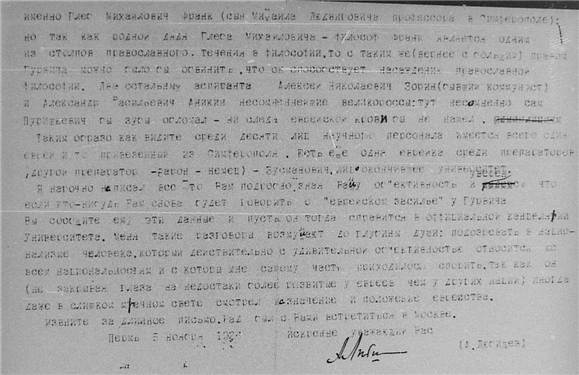 именно Глеб Михайлович Франк (сын Михаила Людвиговича профессора в Симферополе);
но так как родной дядя Глеба Михайловича - философ Франк является одним
из столпов православного течения в философии, то с таким же(вернее с большим) правом
Гурвича можно было бы обвинить, что он способствует насаждению православной
философии. Два остальных аспиранта Алексей Николаевич Зорин(бывший коммунист)
и Александр Васильевич Аникин несомненнейшие великороссы:тут несомненно сам
Пуришкевич бы зубы обломал - ни следа еврейской крови бы не нашел.
Таким образо как видите среди десяти лиц научного персонала имеется всего один
еврей и то привезенный из Симферополя. Есть еще одна еврейка среди препараторов
,другой препаратор -барон - немец) - Зусманович, лицо окончившее университет
Я нарочно написал все это Вам подробно, зная Вашу об"ективность и что
если кто-нибудь Вам снова будет говорить о "еврейском засилье" у Гурвича
Вы сообщите ему эти данные и пусть он тогда справится в официальной канцелярии
Университета. Меня такие разговоры возмущают до глубины души: подозревать в нацио-
нализме человека, который действительно с удивительной об"ективностью относится ко
всем национальностям и с которы мне самому часть приходилось спорить, так как он
(не закрывая глаза на недостаки более развитые у евреев чем у других наций) иногда
даже в слишком мрачном свете смотрел назначение и положение еврейства.
Извините за длинное письмо. Рад был с Вами встретиться в Москве.
Пермь 5 ноября Искренно уважающий Вас